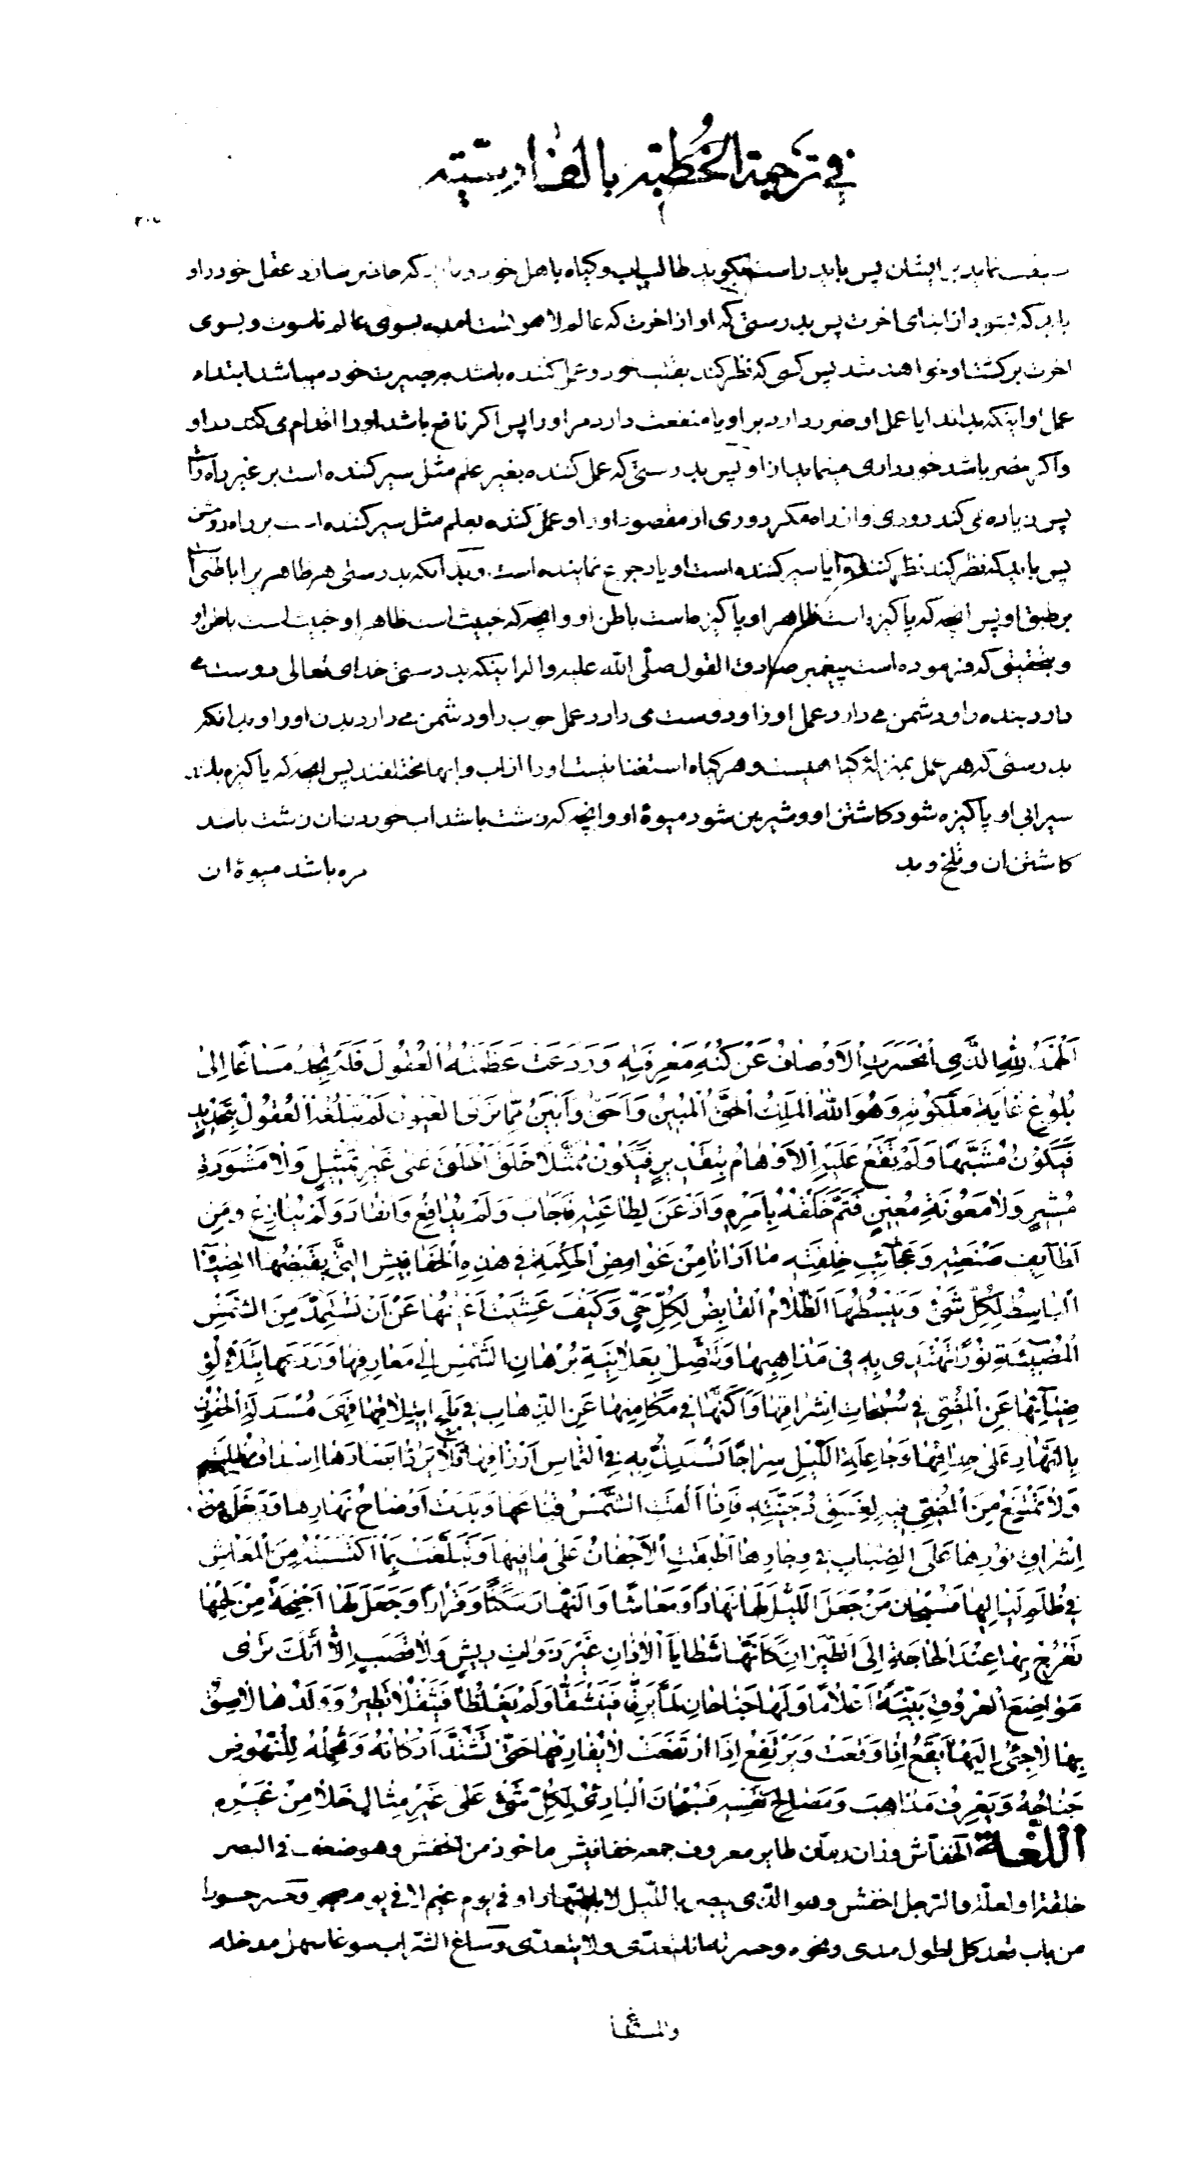 في ترجمة الخطبة بالفارسيّة
نمايد بر ايشان پس بايد راست بگويد طالب اب وكياه باهل خود و بايد كه حاضر سازد عقل خود را و
بايد كه بشود از ابناى اخرت پس بدرستى كه او از اخرت كه عالم لاهوتست امده بسوى عالم ناسوت و بسوى
اخرت بركشت او خواهد شد پس كسى كه نظر كند بقلب خود و عمل كننده باشد ببصيرت خود ميباشد ابتداء
عمل او اينكه بداند ايا عمل او ضرر دارد بر او يا منفعت دارد مر او را پس اكر نافع باشد او را اقدام مى كند بر او
واكر مضر باشد خوددارى مينمايد از او پس بدرستى كه عمل كننده بغير علم مثل سير كننده است بر غير راه راست
پس زياده نمى كند دورى او از راه مكر دورى از مقصود او و عمل كننده بعلم مثل سير كننده است بر راه روشن
پس بايد كه نظر كند نظر كننده ايا سير كننده است او يا رجوع نماينده است. و بدانكه بدرستى هر ظاهر يرا باطنى است
بر طبق او پس انچه كه پاكيزه است ظاهر او پاكيزه است باطن او و انچه كه خبيث است ظاهر او خبيث است باطن او
و بتحقيق كه فرموده است پيغمبر صادق القول صلّى الله عليه واله اينكه بدرستى خداى تعالى دوست مى
دارد بنده را و دشمن مى دارد عمل او را و دوست مى دارد عمل خوب را و دشمن مى دارد بدن او را و بدانكه
بدرستى كه هر عمل بمنزلهٔ كياهيست و هر كياه استغنا نيست او را از اب و ابها مختلفند پس انچه كه پاكيزه باشد
سيرابى او پاكيزه شود كاشتن او و شيرين شود ميوهٔ او و انچه كه زشت باشد اب خوردن ان زشت باشد
كاشتن ان و تلخ و بد مزه باشد ميوهٔ ان
اَلْحَمْدُ لِلّٰهِ الَّذِي انْحَسَرَتِ الْاَوْصٰافُ عَنْ كُنْهِ مَعْرِفَتِهِ وَرَدَعَتْ عَظَمَتُهُ الْعُقُولَ فَلَمْ تَجِدْ مَسٰاغًا اِلىٰ
بُلُوغِ غٰايَةِ مَلَكُوتِهِ وَهُوَ اللّٰهُ الْمَلِكُ الْحَقُّ الْمُبينُ وَاَحَقُّ وَاَبْيَنُ مِمّٰا تَرَى الْعُيُونُ لَمْ تَبْلُغْهُ الْعُقُولُ بِتَحْديدٍ
فَيَكُونَ مُشَبَّهًا وَلَمْ تَقَعْ عَلَيْهِ الْاَوْهٰامُ بِتَقْديرٍ فَيَكُونَ مُمَثَّلًا خَلَقَ الْخَلْقَ عَلىٰ غَيْرِ تَمْثيلٍ وَلٰا مَشْوَرَةِ
مُشيرٍ وَلٰا مَعُونَةِ مُعينٍ فَتَمَّ خَلْقُهُ بِاَمْرِهِ وَاَذْعَنَ لِطٰاعَتِهِ فَاَجٰابَ وَلَمْ يُدٰافِعْ وَانْقٰادَ وَلَمْ يُنٰازِعْ وَمِنْ
لَطٰائِفِ صَنْعَتِهِ وَعَجٰائِبِ خِلْقَتِهِ مٰا اَرٰانٰا مِنْ غَوٰامِضِ الْحِكْمَةِ في هٰذِهِ الْخَفٰافيشِ الَّتي يَقْبِضُهَا الضِّيٰاءُ
الْبٰاسِطُ لِكُلِّ شَىْءٍ وَيَبْسُطُهَا الظَّلٰامُ الْقٰابِضُ لِكُلِّ حَىٍّ وَكَيْفَ عَشِيَتْ اَعْيُنُهٰا عَنْ اَنْ تَسْتَمِدَّ مِنَ الشَّمْسِ
الْمُضيئَةِ نُورًا تَهْتَدي بِهِ في مَذٰاهِبِهٰا وَتَصِلُ بِعَلٰانِيَةِ بُرْهٰانِ الشَّمْسِ اِلىٰ مَعٰارِفِهٰا وَرَدَعَهٰا بِتَلَأْلُؤِ
ضِيٰائِهٰا عَنِ الْمُضِىِّ في سُبُحٰاتِ اِشْرٰاقِهٰا وَاَكَنَّهٰا في مَكٰامِنِهٰا عَنِ الذَّهٰابِ في بَلَجِ ائْتِلٰاقِهٰا فَهِىَ مُسْدَلَةُ الْجُفُونِ
بِالنَّهٰارِ عَلىٰ حِدٰاقِهٰا وَجٰاعِلَةُ اللَّيْلِ سِرٰاجًا تَسْتَدِلُّ بِهِ فِي الْتِمٰاسِ اَرْزٰاقِهٰا فَلٰا يَرُدُّ اَبْصٰارَهٰا اِسْدٰافُ ظُلْمَتِهِ
وَلٰا تَمْتَنِعُ مِنَ الْمُضِىِّ فيهِ لِغَسَقِ دُجُنَّتِهِ فَاِذٰا اَلْقَتِ الشَّمْسُ قِنٰاعَهٰا وَبَدَتْ اَوْضٰاحُ نَهٰارِهٰا وَدَخَلَ مِنْ
اِشْرٰاقِ نُورِهٰا عَلَى الضِّبٰابِ في وِجٰارِهٰا اَطْبَقَتِ الْاَجْفٰانَ عَلىٰ مٰاقيهٰا وَتَبَلَّغَتْ بِمَا اكْتَسَبَتْهُ مِنَ الْمَعٰاشِ
في ظُلَمِ لَيٰاليهٰا فَسُبْحٰانَ مَنْ جَعَلَ اللَّيْلَ لَهٰا نَهٰارًا وَمَعٰاشًا وَالنَّهٰارَ سَكَنًا وَقَرٰارًا وَجَعَلَ لَهٰا اَجْنِحَةً مِنْ لَحْمِهٰا
تَعْرُجُ بِهٰا عِنْدَ الْحٰاجَةِ اِلَى الطَّيَرٰانِ كَاَنَّهٰا شَظٰايَا الْاٰذٰانِ غَيْرَ ذَوٰاتِ ريشٍ وَلٰا قَصَبٍ اِلّٰا اَنَّكَ تَرىٰ
مَوٰاضِعَ الْعُرُوقِ بَيِّنَةً اَعْلٰامًا وَلَهٰا جَنٰاحٰانِ لَمّٰا يَرِقّٰا فَيَنْشَقّٰا وَلَمْ يَغْلُظٰا فَيَثْقُلٰا تَطيرُ وَوَلَدُهٰا لٰاصِقٌ
بِهٰا لٰاجِئٌ اِلَيْهٰا يَقَعُ اِذٰا وَقَعَتْ وَيَرْتَفِعُ اِذَا ارْتَفَعَتْ لٰا يُفٰارِقُهٰا حَتّىٰ تَشْتَدَّ اَرْكٰانُهُ وَيَحْمِلَهُ لِلنُّهُوضِ
جَنٰاحُهُ وَيَعْرِفَ مَذٰاهِبَ وَمَصٰالِحَ نَفْسِهِ فَسُبْحٰانَ الْبٰارِئِ لِكُلِّ شَىْءٍ عَلىٰ غَيْرِ مِثٰالٍ خَلٰا مِنْ غَيْرِهِ
اللّغة الخفّاش وزان رمّان طاير معروف جمعه خفافيش ماخوذ من الخفش وهو ضعف في البصر
خلقة او لعلّة والرّجل اخفش وهو الّذي يبصر باللّيل لا بالنّهار او في يوم غيم لا في يوم صحو وحسر حسورا
من باب قعد كل لطول مدى ونحوه وحسرته انا يتعدّى ولا يتعدّى وساغ الشّراب سوغا سهل مدخله
والمساغ